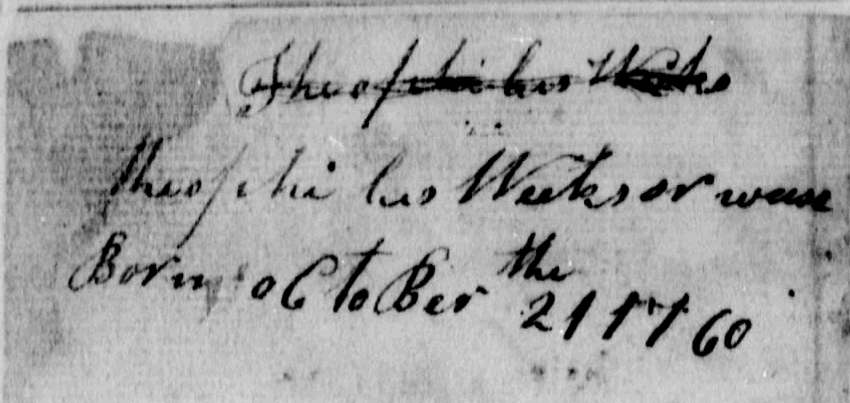 Theophilus Weeks
theophi lus Weeks or wase
Born octoBer the 21 1760